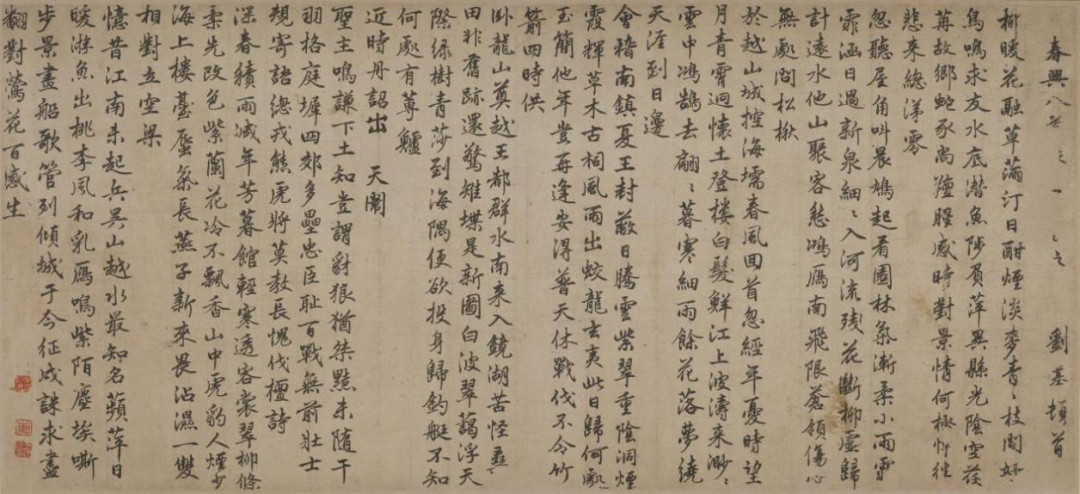 春興八首 劉基頓首
柳暖花融草滿汀日酣煙淡麥青〻枝間好
鳥鳴求友水底潛魚陟負萍異縣光陰空荏
苒故鄉蛇豕尚羶腥感時對景情何極悵往
悲來總涕零
忽聽屋角叫晨鳩起看園林氣漸柔小雨雷
霏涵日過新泉細〻入河流殘花斷柳虛歸
計遠水他山聚客愁鴻雁南飛限蒼領傷心
無處問松楸
於越山城控海壖春風回首忽經年憂時望
月青霄迥懷土登樓白髮鮮江上波濤來渺〻
雲中鴻鵠去翩〻暮寒細雨餘花落夢繞
天涯到日邊
會稽南鎮夏王封蔽日騰雲紫翠重陰洞煙
霞輝草木古祠風雨出蛟龍玄夷此日歸何處
玉簡他年豈再逢安得普天休戰伐不令竹
箭四時供
卧龍山奠越王都群水南來入鏡湖苦怪桑
田非舊跡還驚雉堞是新圖白波翠藹浮天
際綠樹青莎到海隅便欲投身歸釣艇不知
何處有蓴鱸
近時丹詔出 天闕
聖主鳴謙下土知豈謂豺狼猶桀黠未隨干
羽格庭墀四郊多壘忠臣恥百戰無前壯士
規寄語總戎熊虎將莫教長愧伐檀詩
深春積雨減年芳暮館輕寒透客裳翠柳條
柔先改色紫蘭花冷不飄香山中虎豹人煙少
海上樓臺蜃氣長燕子新來畏沾濕一雙
相對立空梁
憶昔江南未起兵吳山越水最知名蘋萍日
暖游魚出桃李風和乳雁鳴紫陌塵埃嘶
步景畫船歌管列傾城于今征戍誅求盡
翻對鶯花百感生